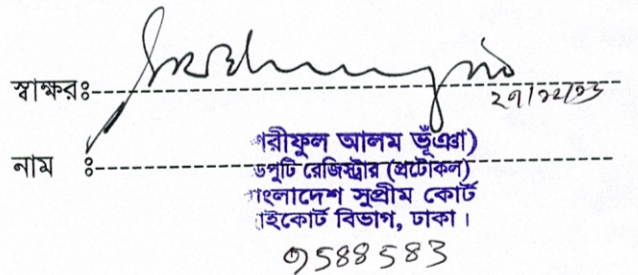 স্বাক্ষরঃ
২৭/১১/২৩
নাম ঃ
শরীফুল আলম ভূঁঞা)
ডেপুটি রেজিস্ট্রার (প্রটোকল)
বাংলাদেশ সুপ্রীম কোর্ট
হাইকোর্ট বিভাগ, ঢাকা।